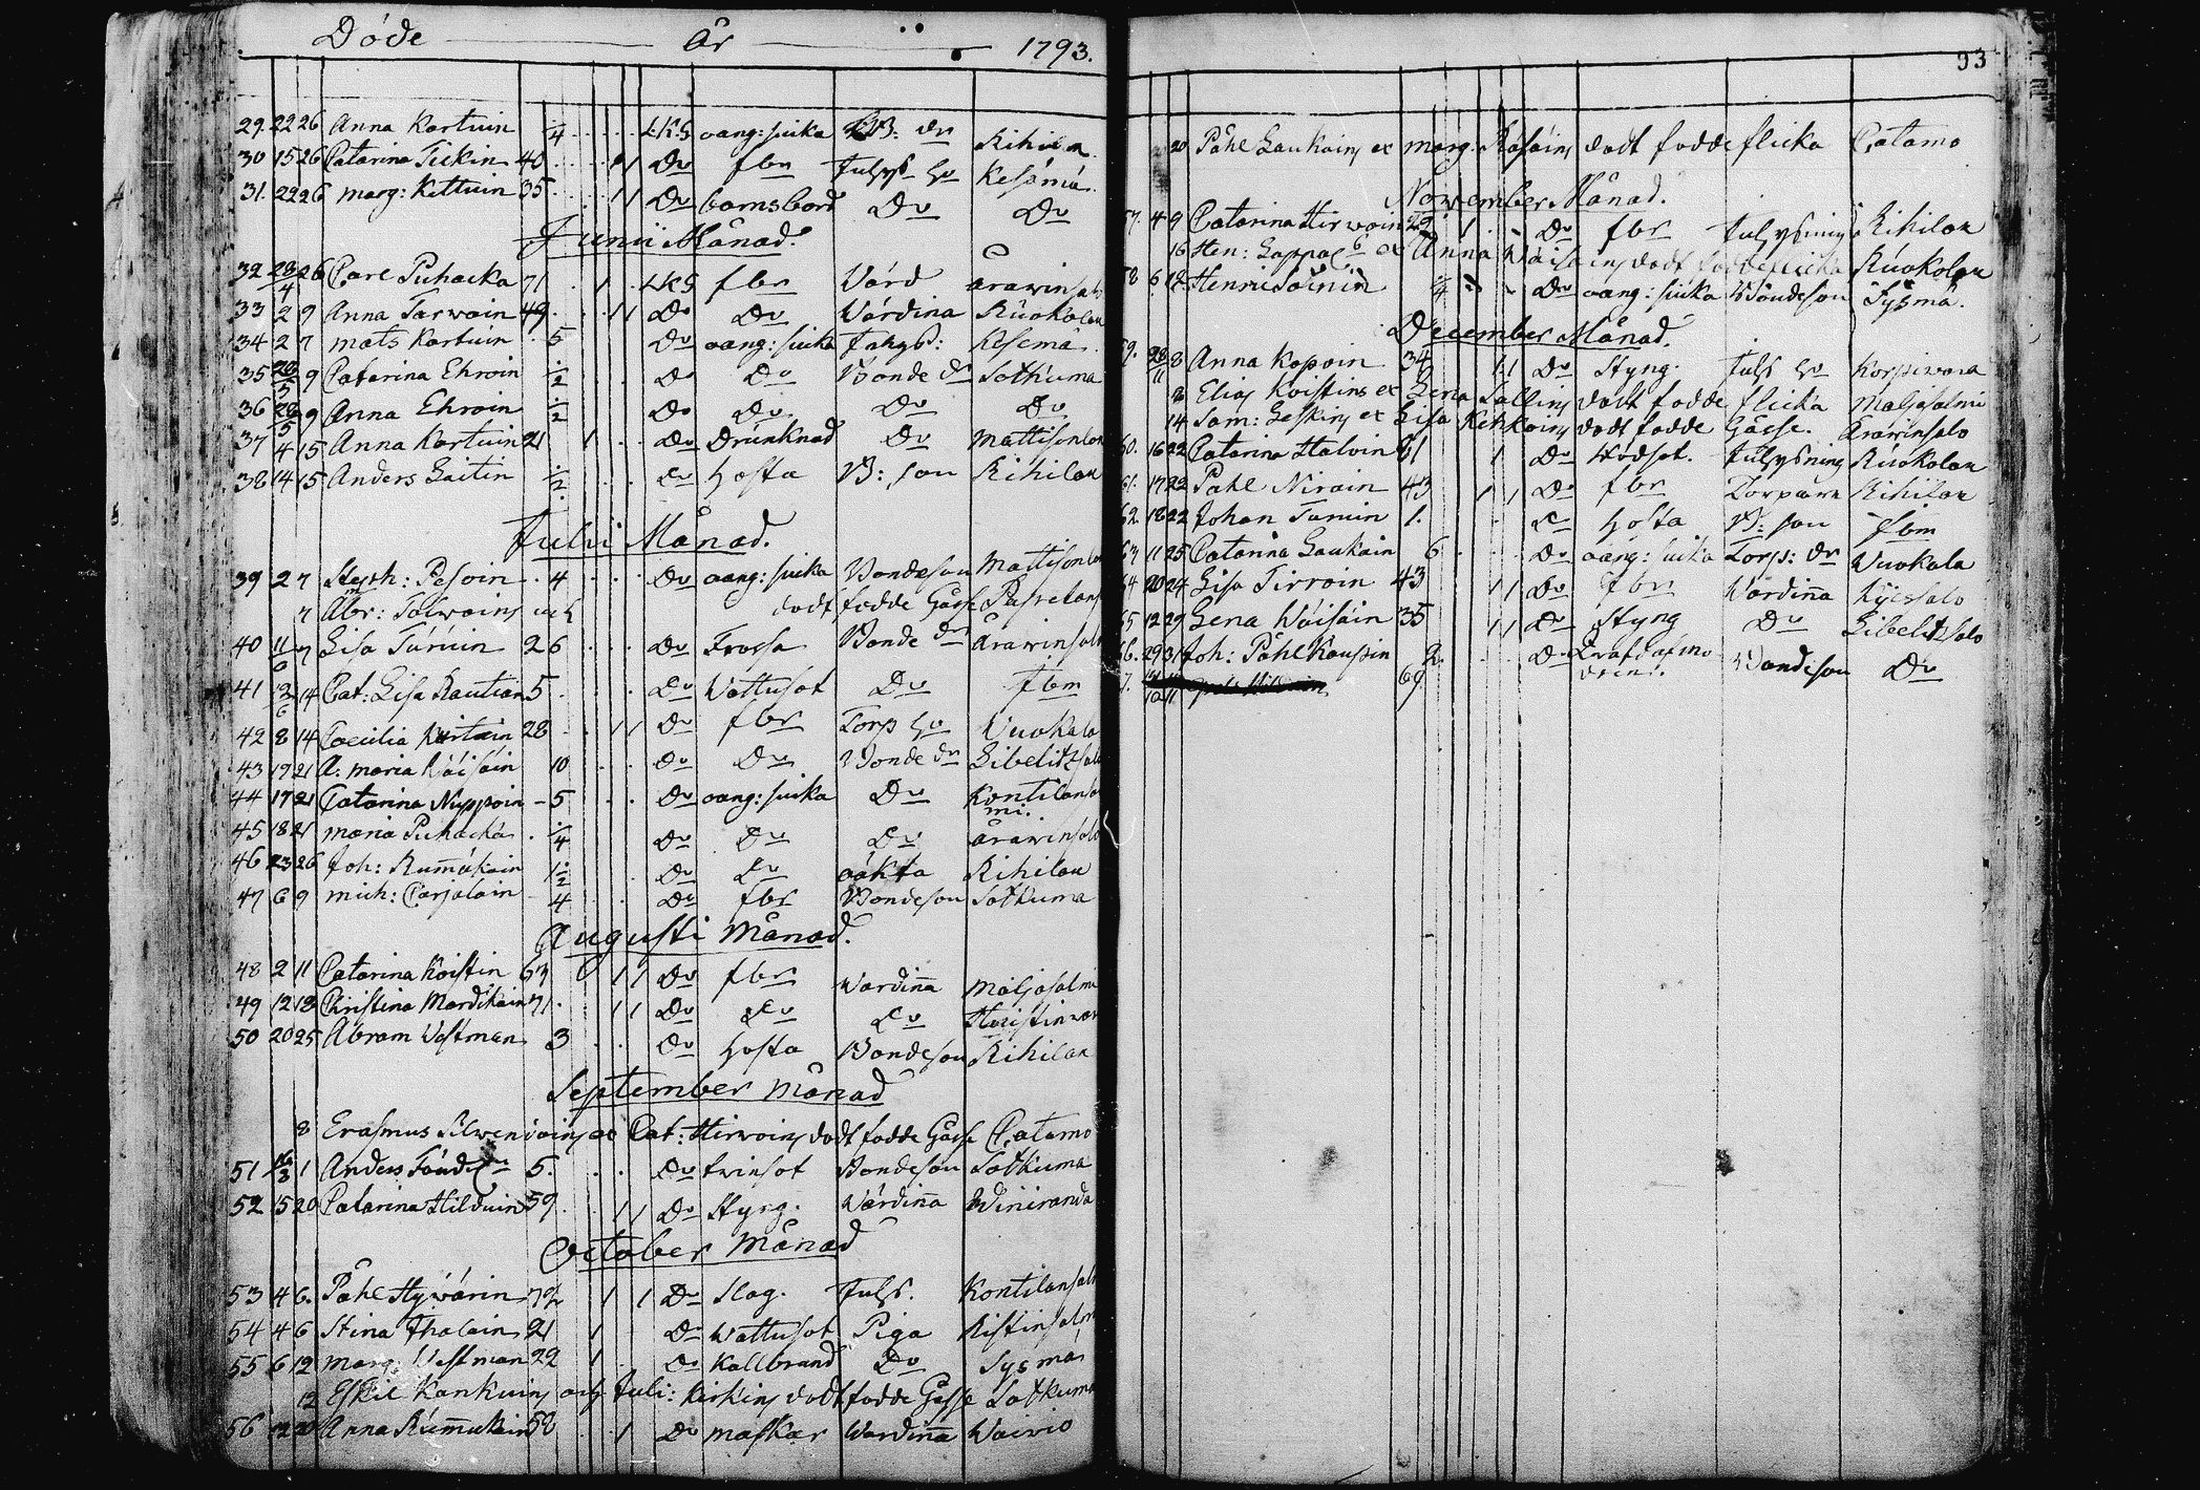 Döde År 1793.
29. 22 26 Anna Kartuin 1/4 L.K.G oäng: siuka B: dr Rihilax
30 15 26 Catarina Tickin 40 11 Do fbr Inhys ho Kesämä
31. 22 26 Marg: Kettuin 35 11 Do barnsbörd Do Do
Junii Månad.
32 28/4 26 Carl Puhacka 71 1 LKG fbr Värd Årawinsalo
33 2 9 Anna Tarwain 49 11 Do Do Värdina Ruokolax
34 2 7 Mats Kartuin 5 Do oäng: siuka Inhys: Kesemä
35 28/5 9 Catarina Ehroin 1/2 Do Do Bonde dr Sotkuma
36 28/5 9 Anna Ehroin 1/2 Do Do Do Do
37 4 15 Anna Kartuin 21 1 Do Drunknad Do Mattisenlax
38 14 15 Anders Laitin 1/2 Do Hosta B: son Rihilax
Julii Månad.
39 2 7 Steph: Pesoin 4 Do oäng: siuka Bondeson Mattisenlax
7 Abr: Tolwains och dödfödde Gåsse
40 11/6 7 Lisa Turuin 26 Do Frossa Bonde dr Årawinsalo
41 12/6 14 Cat: Lisa Rautiain 5 Do Wattusot Do Ibm
42 8 14 Caecilia Kartuin 28 11 Do fbr Torp ho Wuokala
43 19 21 A: Maria Wäisäin 10 Do Do Bonde dr Libelitzsalo
44 17 21 Catarina Nuppoin 5 Do oäng: siuka Do Kontilansalmi.
45 18 21 Maria Puhacka 1/4 Do Do Do Årawinsalo
46 23 26 Joh: Rummukain 1 1/2 Do Do oäkta Rihilax
47 6 9 Mich: Carjalain 4 Do fbr Bondeson Sotkuma
Augusti Månad.
48 2 11 Catarina Koistin 67 11 Do fbr Wärdinna Maljasalmi
49 12 18 Christina Mardikain 71. 11 Do Do Do
50 20 25 Abram Westman 3 Do Hosta Bondeson Rihilax
September Månad
8 Erasmus Silwenoins ac Cat: Hirwoins dödt födde Gåsse Catamo
51 1 Anders 5. Do trinsot Bondeson Sotkuma
52 15 20 Catarina Hilduin 59. 11 Do Styng. Värdinna Winiranda
October Månad
53 4 6. Påhl Hywärin 72 1 1 Do Slag. Inhs. Kontilansalo
54 4 6 Stina Ihalain 21 1 Do Wattusot Piga Ristinsalmi
55 6 12 Marg: Westman 22 1 Do Kallbrand Do Sysmä
12 Eskil Kankuins och Juli: Kirkins dödt födde Gåsse Sotkuma
56 12 20 Anna Rummukain 52 1 Do maskar Wärdinna Waivio
93
20 Påhl Laukains ex Marg. Räsäins dödt födde flicka Catamo
November Månad.
57. 4 9 Catarina Hirwoin 29 1 Do fbr Inhysning Rihilax
16 Hen: Lappal: ex Anna Wäisäins dödt födde flicka Ruokolax
58 6 18 Henric Soinin 1/4 Do oäng: siuka Bondeson Sysmä.
December Månad.
59. 28/11 8 Anna Kopoin 34 11 Do Styng. Inhs ho Korpiwara
8 Elias Koistins ex Lena Sallins dödt födde flicka Maljasalmi
14 Sam: Leskins ex Lisa Kihkoins dödt födde Gåsse. Årawinsalo
60. 16 22 Catarina Halvin 61 1 Do Hödsot. Inhysning Ruokolax
61. 17 22 Påhl Niroin 43 11 Do fbr Torpare Rihilax
62. 18 22 Johan Turuin 1. Do Hosta B: son Ibm
63 11 25 Catarina Laukain 6 Do oäng: siuka Torp: dr Wuokala
64 20 24 Lisa Tirroin 43 11 Do fbr Wärdinna Kycssalo
65 12 29 Lena Wäisäin 35 11 Do Styng Do Libelitzsalo
66. 29 31 Joh: Påhl Kaupin 2 Do Bondeson Do
7. 69